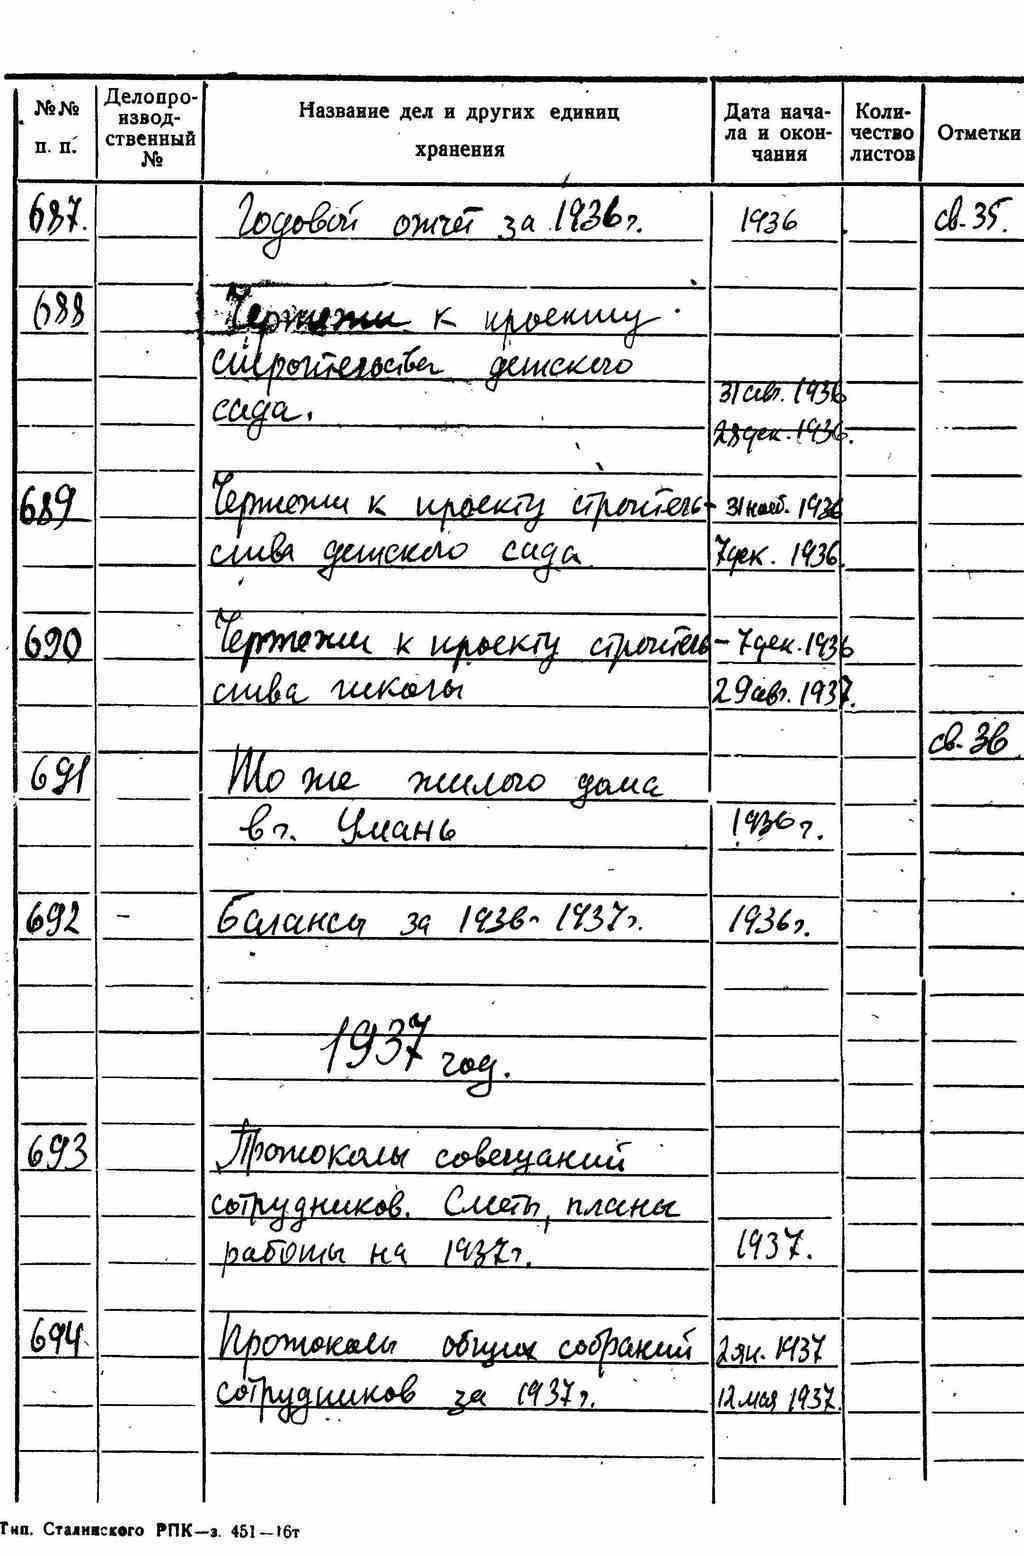 №№ п. п.
Делопро-
извод-
ственный
№
Название дел и других единиц
хранения
Дата нача-
ла и окон-
чания
Коли-
чество
листов
Отметки
687. Годовой отчет за 1936 г. 1936 св. 35.
688 Чертежи к проекту
строительства детского
сада. 31 авг. 1936
28 дек. 1936.
689 Чертежи к проекту строитель- 31 нояб. 1936
ства детского сада 7 дек. 1936.
690 Чертежи к проекту строитель- 7 дек. 1936
ства школы 29 авг. 1937.
св. 36
691 То же жилого дома
в г. Умань 1936 г.
692 - Балансы за 1936-1937 г. 1936 г.
1937 год.
693 Протоколы совещаний
сотрудников. Сметы, планы
работы на 1937 г. 1937.
694. Протоколы общих собраний 2 ян. 1937
сотрудников за 1937 г. 12 мая 1937.
Тип. Сталинского РПК—з. 451—16т